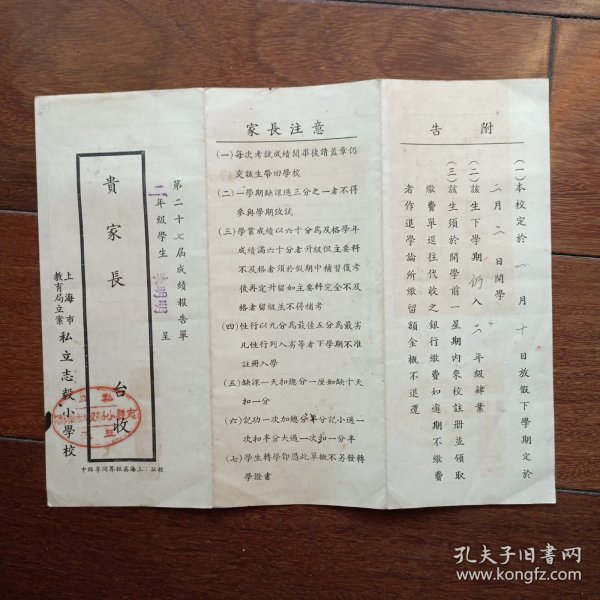 附告
(一)本校定於一月十日放假下學期定於
二月二日開學
(二)該生下學期仍入二年級肄業
(三)該生須於開學前一星期內來校註册並領取
繳費單逕往代收之銀行繳費如逾期不繳費
者作退學論所繳留額金概不退還
家長注意
(一)每次考試成績閱畢後請蓋章仍
交該生帶囘學校
(二)一學期缺課過三分之一者不得
參與學期攷試
(三)學業成績以六十分爲及格學年
成績滿六十分者升級但主要科
不及格者須於假期中補習復考
後再定升留如主要科完全不及
格者留級並不得補考
(四)性行以九分爲最佳五分爲最劣
凡性行列入劣等者下學期不准
註册入學
(五)缺課一天扣總分一厘如缺十天
扣一分
(六)記功一次加總分半分記小過一
次扣半分大過一次扣一分半
(七)學生轉學卽憑此單概不另發轉
學證書
第二十七屆成績報告單
二年級學生 明明 呈
貴家長 台收
上海市
教育局立案
私立志毅小學校
校址：上海英租界同孚路中
孔夫子旧书网
www.kongfz.com